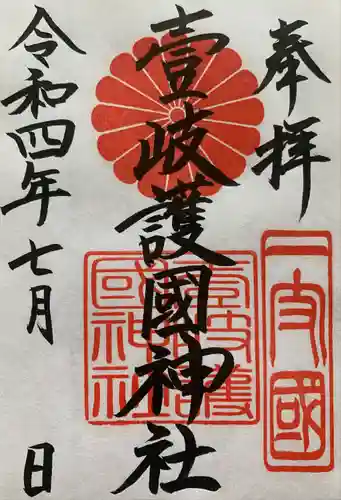 奉拝
壹岐護國神社
令和四年七月 日
一支國
壹岐護國神社